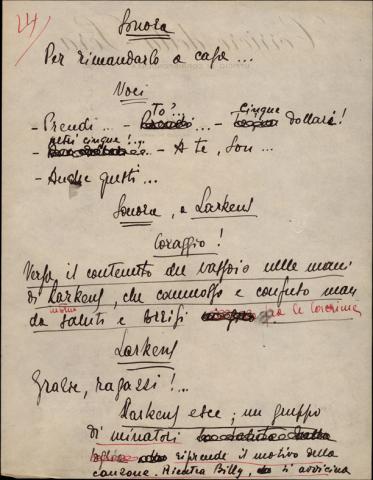 24)
Sonora
Per rimandarlo a casa...
Voci
To'... Cinque
- Prendi... - ... - dollari!
altri cinque!...
- A te, Son...
- Anche questi...
Sonora, a Larkens
Coraggio!
Versa il contenuto del vassoio nelle mani
di Larkens, che commosso e confuso man
da saluti e sorrisi fra le lacrime
Larkens
Grazie, ragazzi!...
Larkens esce; un gruppo
di minatori
riprende il motivo della
canzone. Rientra Billy, si avvicina